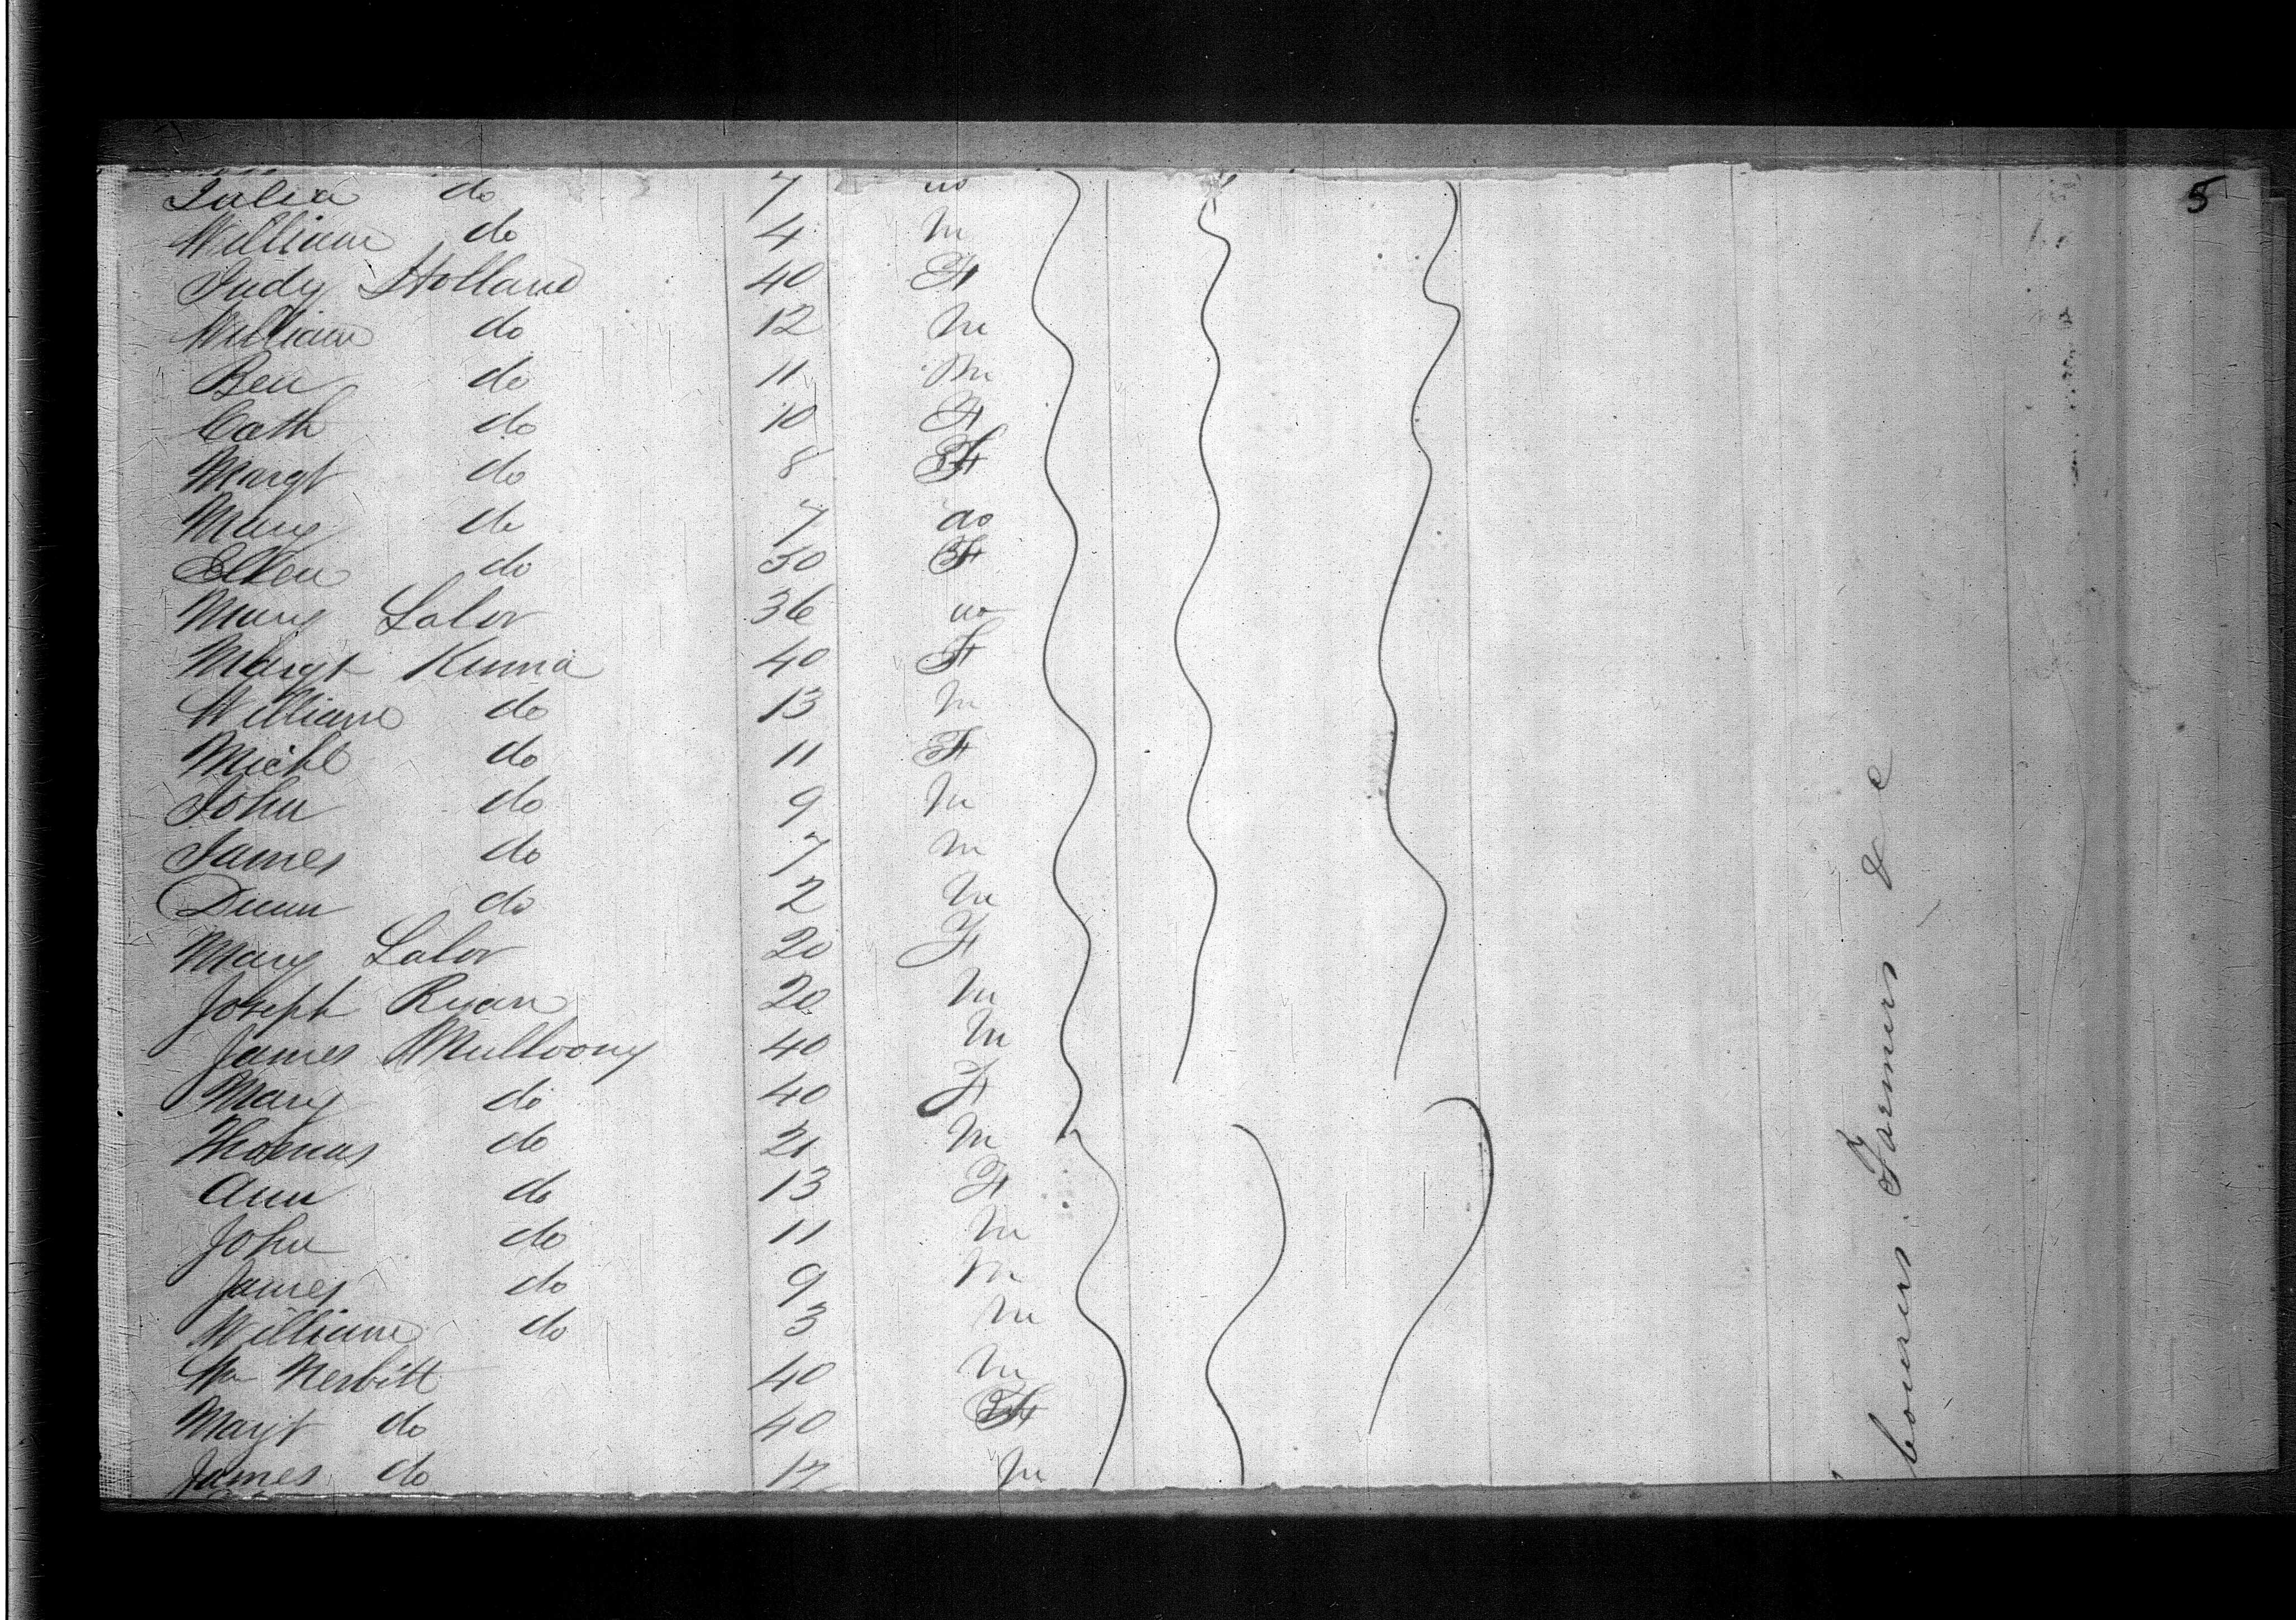 5
Julia do 7 do
William do 4 M
Judy Holland 40 F
William do 12 M
Ben do 11 M
Cath do 10 F
Margt do 8 F
Mary do 7 do
Ellen do 30 F
Mary Lalor 36 do
Margt Kinna 40 F
William do 13 M
Michl do 11 F
John do 9 M
James do 7 M
do 2 M
Mary Lalor 20 F
Joseph Ryan 20 M
James Mullvony 40 M
Mary do 40 F
Thomas do 21 M
Ann do 13 F
John do 11 M
James do 9 M
William do 3 M
Wm Nesbitt 40 M
Margt do 40 F
James do 17 M
bourers. Farmers &c